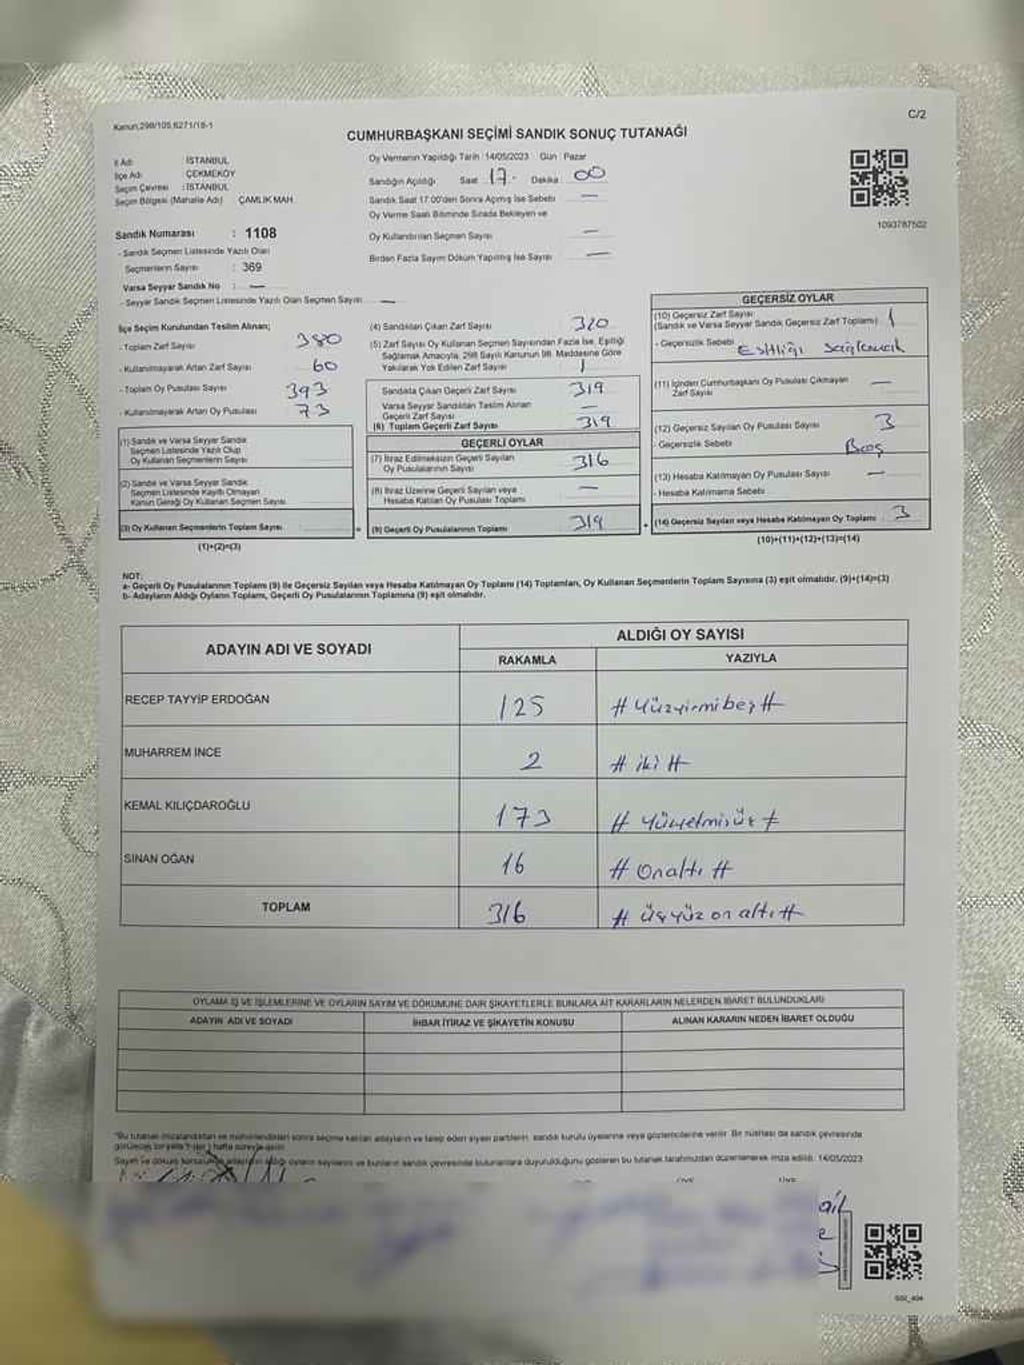 Kanun,298/105,6271/18-1
C/2
CUMHURBAŞKANI SEÇİMİ SANDIK SONUÇ TUTANAĞI
İl Adı : İSTANBUL
İlçe Adı : ÇEKMEKÖY
Seçim Çevresi : İSTANBUL
Seçim Bölgesi (Mahalle Adı) ÇAMLIK MAH.
Sandık Numarası : 1108
- Sandık Seçmen Listesinde Yazılı Olan
Seçmenlerin Sayısı : 369
Varsa Seyyar Sandık No : —
- Seyyar Sandık Seçmen Listesinde Yazılı Olan Seçmen Sayısı —
Oy Vermenin Yapıldığı Tarih 14/05/2023 Gün : Pazar
Sandığın Açıldığı Saat 17. Dakika 00
Sandık Saat 17:00'den Sonra Açılmış İse Sebebi —
Oy Verme Saati Bitiminde Sırada Bekleyen ve
Oy Kullandırılan Seçmen Sayısı —
Birden Fazla Sayım Döküm Yapılmış İse Sayısı —
1093787502
İlçe Seçim Kurulundan Teslim Alınan;
- Toplam Zarf Sayısı 380
- Kullanılmayarak Artan Zarf Sayısı 60
- Toplam Oy Pusulası Sayısı 393
- Kullanılmayarak Artan Oy Pusulası 73
(1) Sandık ve Varsa Seyyar Sandık
Seçmen Listesinde Yazılı Olup
Oy Kullanan Seçmenlerin Sayısı
(2) Sandık ve Varsa Seyyar Sandık
Seçmen Listesinde Kayıtlı Olmayan
Kanun Gereği Oy Kullanan Seçmen Sayısı
(3) Oy Kullanan Seçmenlerin Toplam Sayısı =
(1)+(2)=(3)
(4) Sandıktan Çıkan Zarf Sayısı 320
(5) Zarf Sayısı Oy Kullanan Seçmen Sayısından Fazla İse, Eşitliği
Sağlamak Amacıyla, 298 Sayılı Kanunun 98. Maddesine Göre
Yakılarak Yok Edilen Zarf Sayısı 1
Sandıkta Çıkan Geçerli Zarf Sayısı 319
Varsa Seyyar Sandıktan Teslim Alınan
Geçerli Zarf Sayısı —
(6) Toplam Geçerli Zarf Sayısı 319
GEÇERLİ OYLAR
(7) İtiraz Edilmeksizin Geçerli Sayılan
Oy Pusulalarının Sayısı 316
(8) İtiraz Üzerine Geçerli Sayılan veya
Hesaba Katılan Oy Pusulası Toplamı —
(9) Geçerli Oy Pusulalarının Toplamı 319 +
GEÇERSİZ OYLAR
(10) Geçersiz Zarf Sayısı
(Sandık ve Varsa Seyyar Sandık Geçersiz Zarf Toplamı) 1
- Geçersizlik Sebebi Eşitliği sağlamak
(11) İçinden Cumhurbaşkanı Oy Pusulası Çıkmayan
Zarf Sayısı —
(12) Geçersiz Sayılan Oy Pusulası Sayısı 3
- Geçersizlik Sebebi Boş
(13) Hesaba Katılmayan Oy Pusulası Sayısı —
- Hesaba Katılmama Sebebi
(14) Geçersiz Sayılan veya Hesaba Katılmayan Oy Toplamı 3
(10)+(11)+(12)+(13)=(14)
NOT:
a- Geçerli Oy Pusulalarının Toplamı (9) ile Geçersiz Sayılan veya Hesaba Katılmayan Oy Toplamı (14) Toplamları, Oy Kullanan Seçmenlerin Toplam Sayısına (3) eşit olmalıdır. (9)+(14)=(3)
b- Adayların Aldığı Oyların Toplamı, Geçerli Oy Pusulalarının Toplamına (9) eşit olmalıdır.
ADAYIN ADI VE SOYADI ALDIĞI OY SAYISI
RAKAMLA YAZIYLA
RECEP TAYYİP ERDOĞAN 125 # Yüzyirmibeş #
MUHARREM İNCE 2 # iki #
KEMAL KILIÇDAROĞLU 173 # Yüzyetmişüç #
SİNAN OĞAN 16 # Onaltı #
TOPLAM 316 # üçyüz on altı #
OYLAMA İŞ VE İŞLEMLERİNE VE OYLARIN SAYIM VE DÖKÜMÜNE DAİR ŞİKAYETLERLE BUNLARA AİT KARARLARIN NELERDEN İBARET BULUNDUKLARI
ADAYIN ADI VE SOYADI İHBAR İTİRAZ VE ŞİKAYETİN KONUSU ALINAN KARARIN NEDEN İBARET OLDUĞU
"Bu tutanak imzalandıktan ve mühürlendikten sonra seçime katılan adayların ve talep eden siyasi partilerin, sandık kurulu üyelerine veya gözlemcilerine verilir. Bir nüshası da sandık çevresinde
Sayım ve döküm oyların sayılarını ve bunların sandık çevresinde bulunanlara duyurulduğunu gösteren bu tutanak tarafımızdan düzenlenerek imza edildi. 14/05/2023